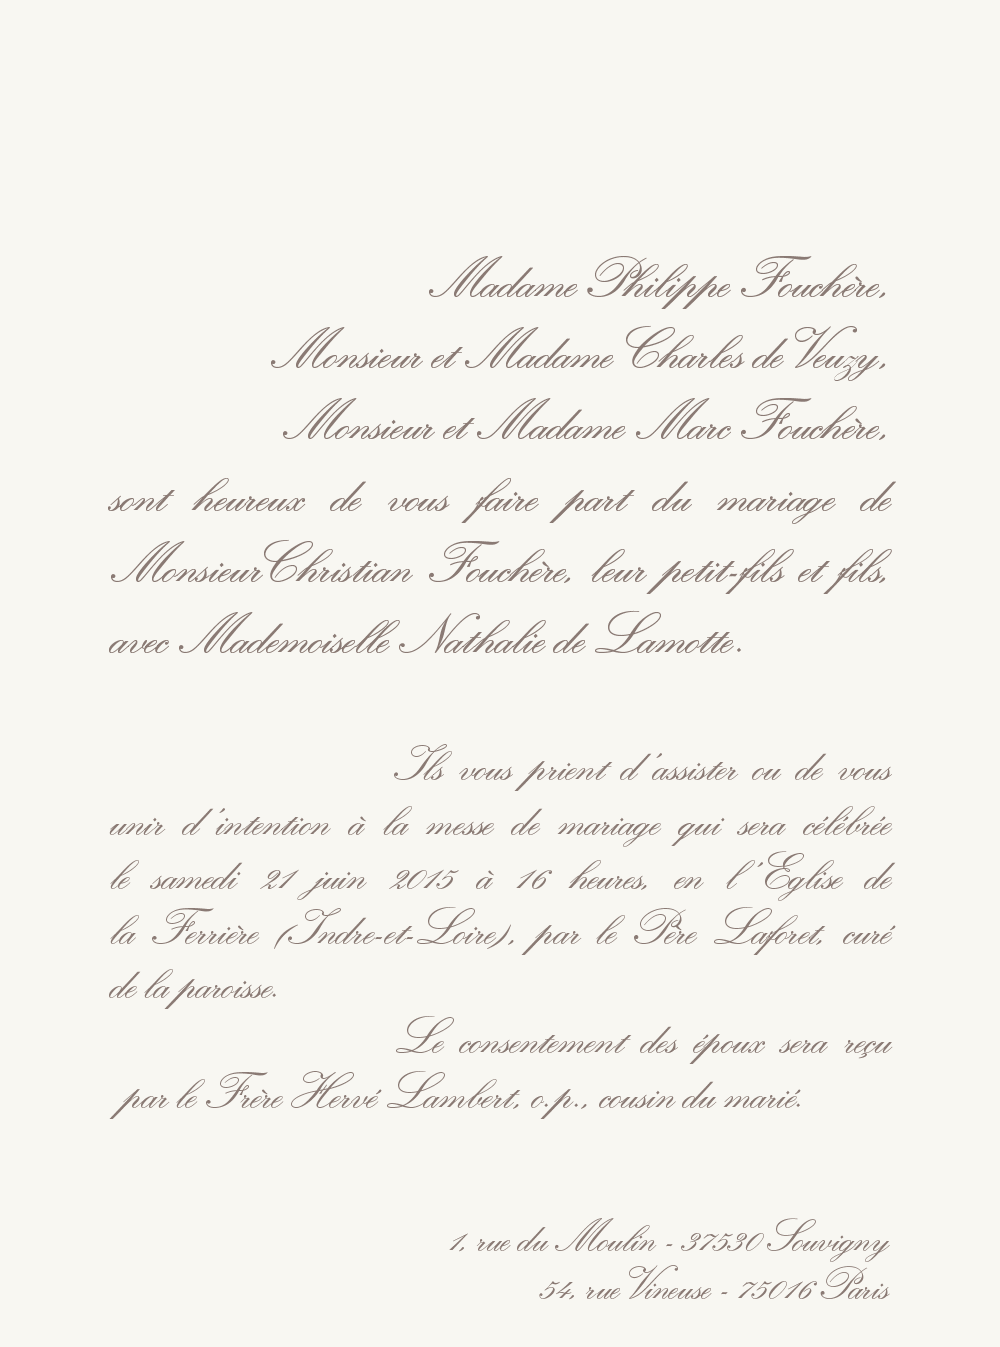 Madame Philippe Fouchère,
Monsieur et Madame Charles de Veuzy,
Monsieur et Madame Marc Fouchère,
sont heureux de vous faire part du mariage de
Monsieur Christian Fouchère, leur petit-fils et fils,
avec Mademoiselle Nathalie de Lamotte.
Ils vous prient d'assister ou de vous
unir d'intention à la messe de mariage qui sera célébrée
le samedi 21 juin 2015 à 16 heures, en l'Eglise de
la Ferrière (Indre-et-Loire), par le Père Laforet, curé
de la paroisse.
Le consentement des époux sera reçu
par le Frère Hervé Lambert, o.p., cousin du marié.
1, rue du Moulin - 37530 Souvigny
54, rue Vineuse - 75016 Paris